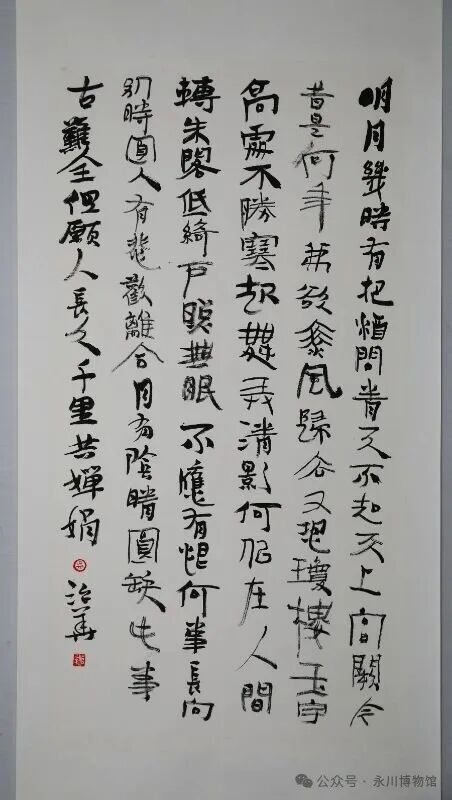 明月幾時有把酒問青天不知天上宮闕今
昔是何年我欲乘風歸去又恐瓊樓玉宇
高處不勝寒起舞弄清影何似在人間
轉朱閣低綺戶照無眠不應有恨何事長向
別時圓人有悲歡離合月有陰晴圓缺此事
古難全但願人長久千里共嬋娟
治華
公众号·永川博物馆